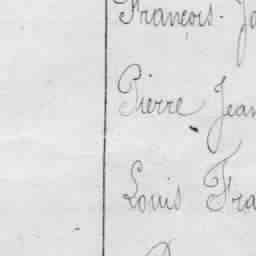 François- Jo
Pierre Jean
Louis Fra